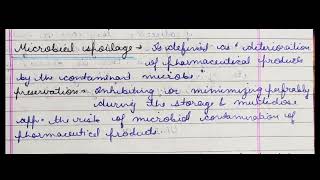 Microbial spoilage → Is defined as "deterioration
of pharmaceutical products
by the contaminant microbe."
preservation → Inhibiting or minimizing
during the storage & multidose
app. the risk of microbial contamination of
pharmaceutical products